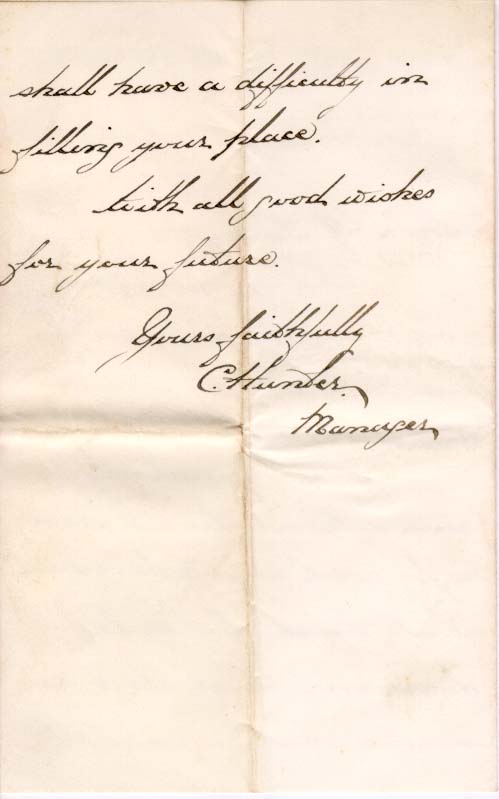 shall have a difficulty in
filling your place.
With all good wishes
for your future.
Yours faithfully
C. Hunter.
Manager